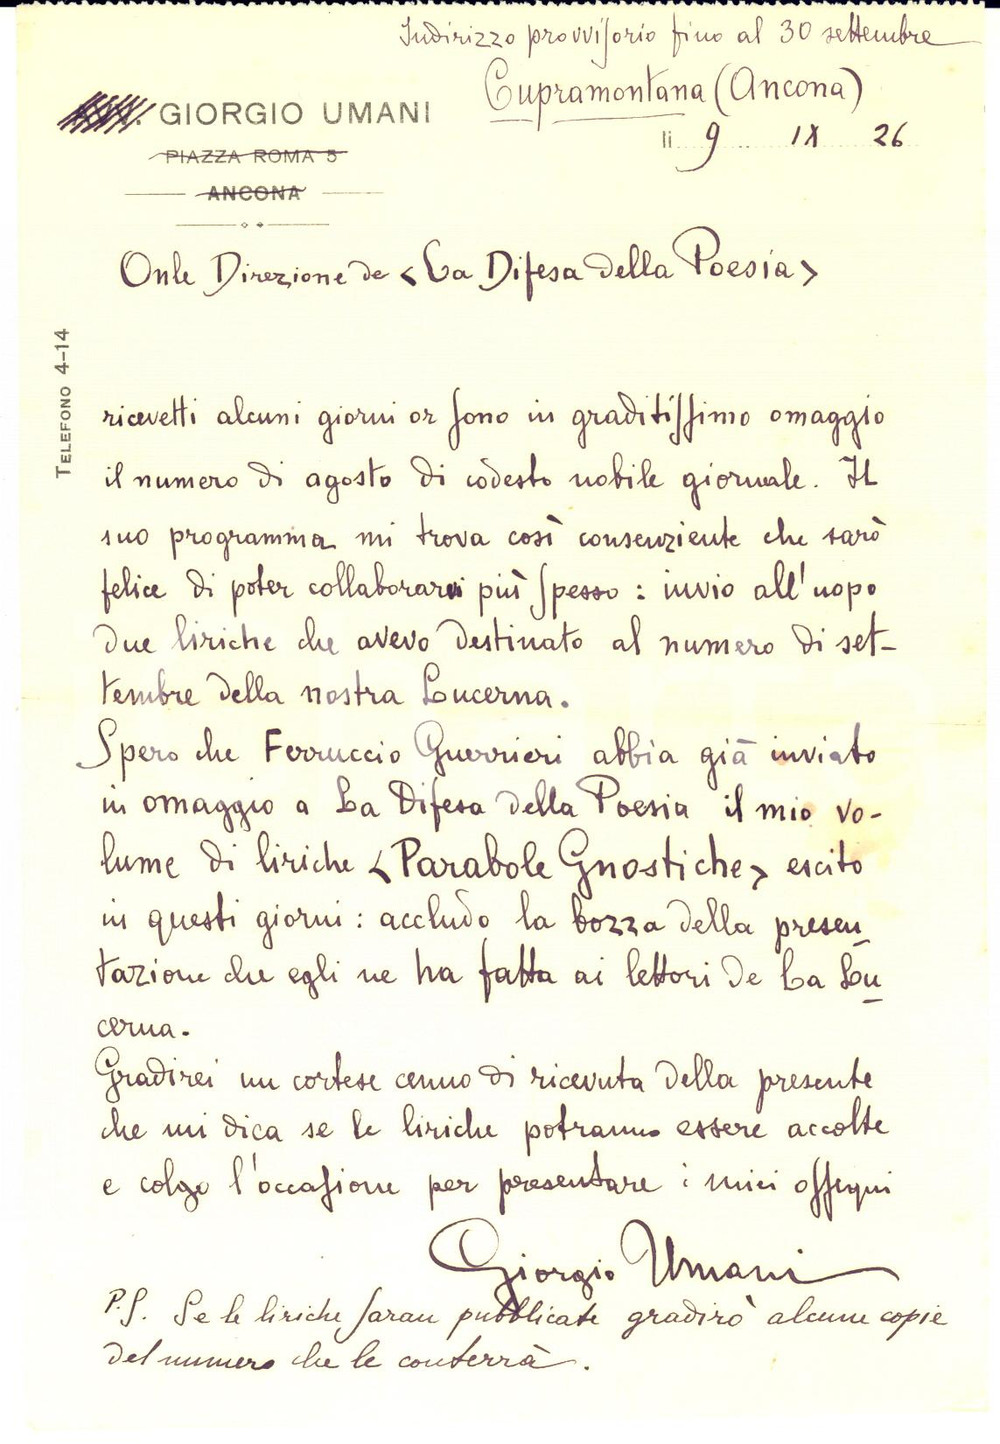 Indirizzo provvisorio fino al 30 settembre
Cupramontana (Ancona)
GIORGIO UMANI
li 9 IX 26
PIAZZA ROMA 5
ANCONA
Onle Direzione de <La Difesa della Poesia>
TELEFONO 4-14
ricevetti alcuni giorni or sono in graditissimo omaggio
il numero di agosto di codesto nobile giornale. Il
suo programma mi trova così consenziente che sarò
felice di poter collaborarvi più spesso : invio all'uopo
due liriche che avevo destinato al numero di set-
tembre della nostra Lucerna.
Spero che Ferruccio Guerrieri abbia già inviato
in omaggio a La Difesa della Poesia il mio vo-
lume di liriche <Parabole Gnostiche> escito
in questi giorni : accludo la bozza della presen-
tazione che egli ne ha fatta ai lettori de La Lu-
cerna.
Gradirei un cortese cenno di ricevuta della presente
che mi dica se le liriche potranno essere accolte
e colgo l'occasione per presentare i miei ossequi
Giorgio Umani
P.S. Se le liriche saran pubblicate gradirò alcune copie
del numero che le conterrà.